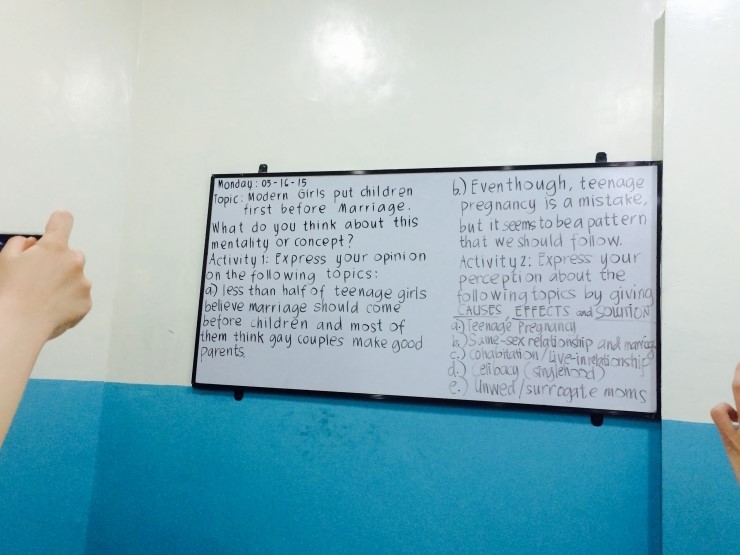 Monday: 03-16-15
Topic: Modern Girls put children
first before Marriage.
What do you think about this
mentality or concept?
Activity 1: Express your opinion
on the following topics:
a) less than half of teenage girls
believe marriage should come
before children and most of
them think gay couples make good
parents.
b.) Eventhough, teenage
pregnancy is a mistake,
but it seems to be a pattern
that we should follow.
Activity 2: Express your
perception about the
following topics by giving
CAUSES, EFFECTS and SOLUTION
a.) Teenage Pregnancy
b.) Same-sex relationship and marriage
c.) Cohabitation/Live-in relationship
d.) Celibacy (singlehood)
e.) Unwed/surrogate moms